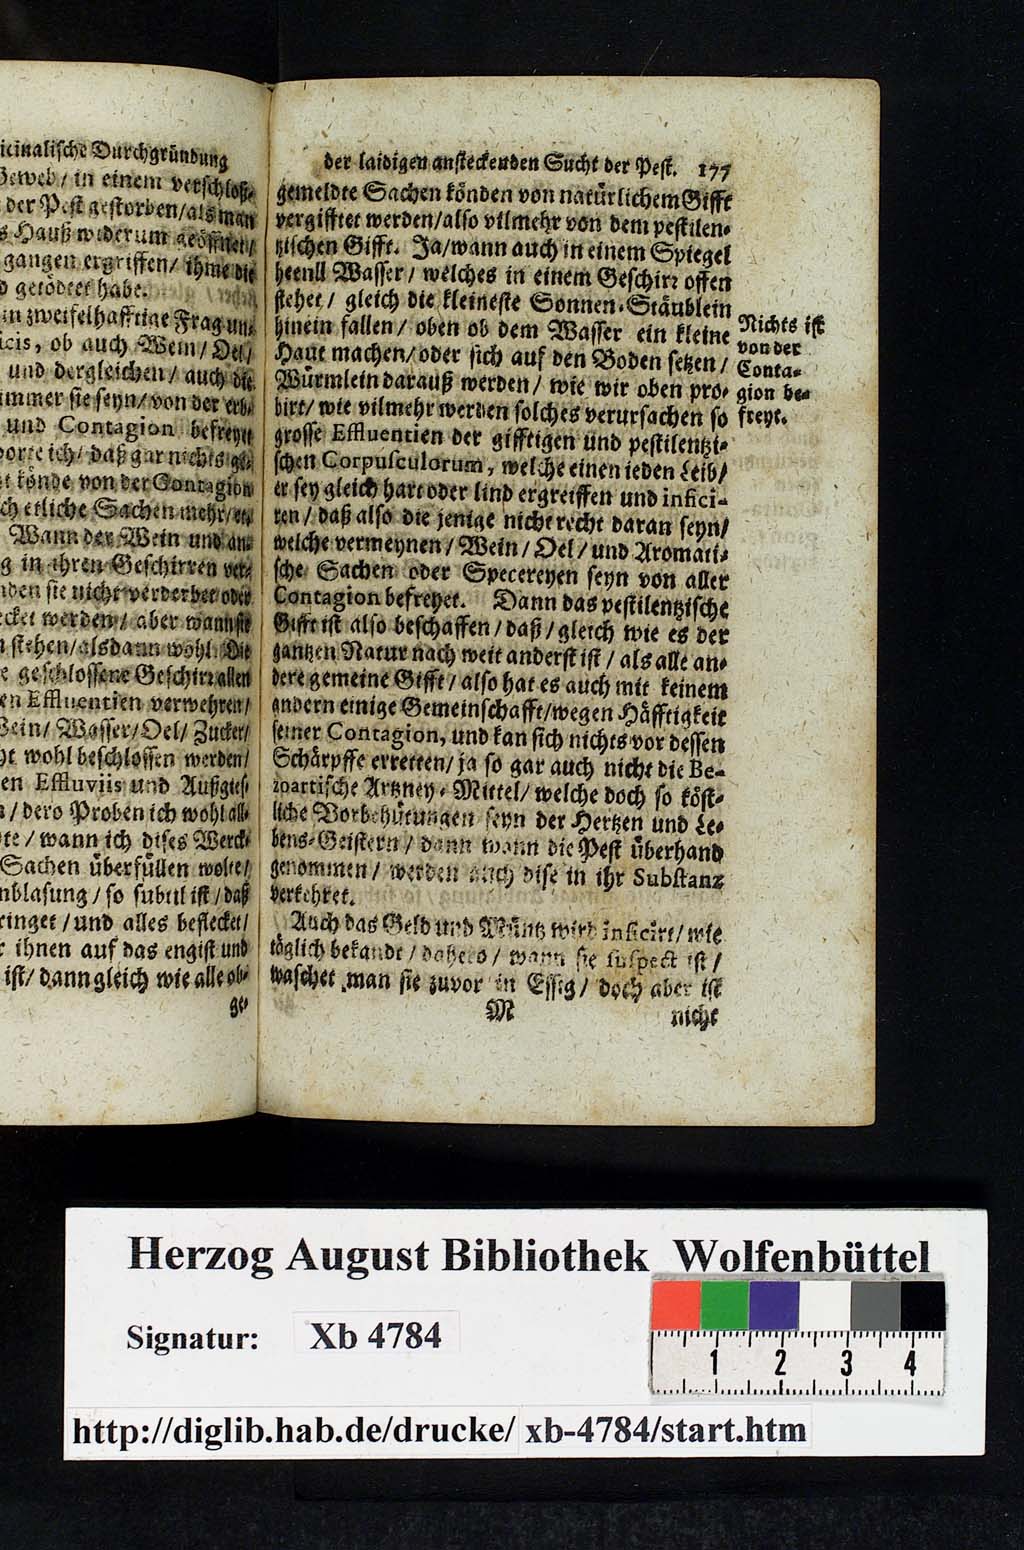 icinalische Durchgründung
Geweb / in einem verschloß-
der Pest gestorben / als man
s Hauß widerum geöffnet /
gangen ergriffen / ihme die
d getödtet habe.
in zweifelhafftige Frag un-
icis, ob auch Wein / Oel /
und dergleichen / auch die
immer sie seyn / von der erb-
und Contagion befreyet
ich / daß gar nichts ge-
könde von der Contagion
ch etliche Sachen mehr /
Wann der Wein und an-
g in ihren Geschirren ver-
nden sie nicht verderbet oder
cket werden / aber wann sie
n stehen / alsdann wohl. Die
e geschlossene Geschirr allen
en Effluentien verwehren /
Wein / Wasser / Oel / Zucker /
ht wohl beschlossen werden /
en Effluviis und Außgies-
n / dero Proben ich wohl all-
te / wann ich dises Werck-
Sachen überfüllen wolte /
nblasung / so subtil ist / daß
ringet / und alles beflecket /
r ihnen auf das engist und
ist / dann gleich wie alle ob-
ge-
der laidigen ansteckenden Sucht der Pest. 177
gemeldte Sachen könden von natürlichem Gifft
vergifftet werden / also vilmehr von dem pestilen-
tzischen Gifft. Ja / wann auch in einem Spiegel
heenll Wasser / welches in einem Geschirr offen
stehet / gleich die kleineste Sonnen-Stäublein
hinein fallen / oben ob dem Wasser ein kleine
Haut machen / oder sich auf den Boden setzen /
Würmlein darauß werden / wie wir oben pro-
birt / wie vilmehr werden solches verursachen so
grosse Effluentien der gifftigen und pestilentzi-
schen Corpusculorum, welche einen ieden Leib /
er sey gleich hart oder lind ergreiffen und infici-
ren / daß also die jenige nicht recht daran seyn /
welche vermeynen / Wein / Oel / und Aromati-
sche Sachen oder Specereyen seyn von aller
Contagion befreyet. Dann das pestilentzische
Gifft ist also beschaffen / daß / gleich wie es der
gantzen Natur nach weit anderst ist / als alle an-
dere gemeine Gifft / also hat es auch mit keinem
andern einige Gemeinschafft / wegen Häfftigkeit
seiner Contagion, und kan sich nichts vor dessen
Schärpffe erretten / ja so gar auch nicht die Be-
zoartische Artzney-Mittel / welche doch so köst-
liche Vorbehütungen seyn der Hertzen und Le-
bens-Geistern / dann wann die Pest überhand
genommen / werden auch dise in ihr Substanz
verkehret.
Auch das Geld und Müntz wird inficirt / wie
täglich bekandt / dahero / wann sie suspect ist /
waschet man sie zuvor in Essig / doch aber ist
M nicht
Nichts ist
von der
Conta-
gion be-
freyt.
Herzog August Bibliothek Wolfenbüttel
Signatur: Xb 4784
1 2 3 4
http://diglib.hab.de/drucke/ xb-4784/start.htm